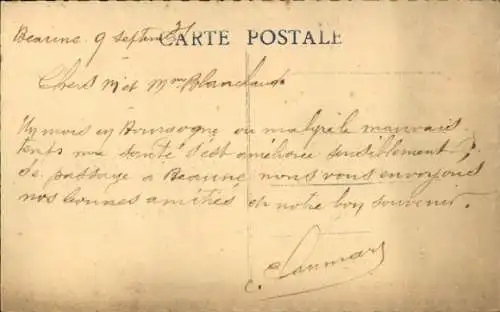 Beaune 9 septem
CARTE POSTALE
Chers M et Mme Blanchaud
Un mois en Bourgogne ou malgré le mauvais
temps ma santé s'est améliorée sensiblement
de passage a Beaune nous vous envoyons
nos bonnes amitiés et notre bon souvenir.